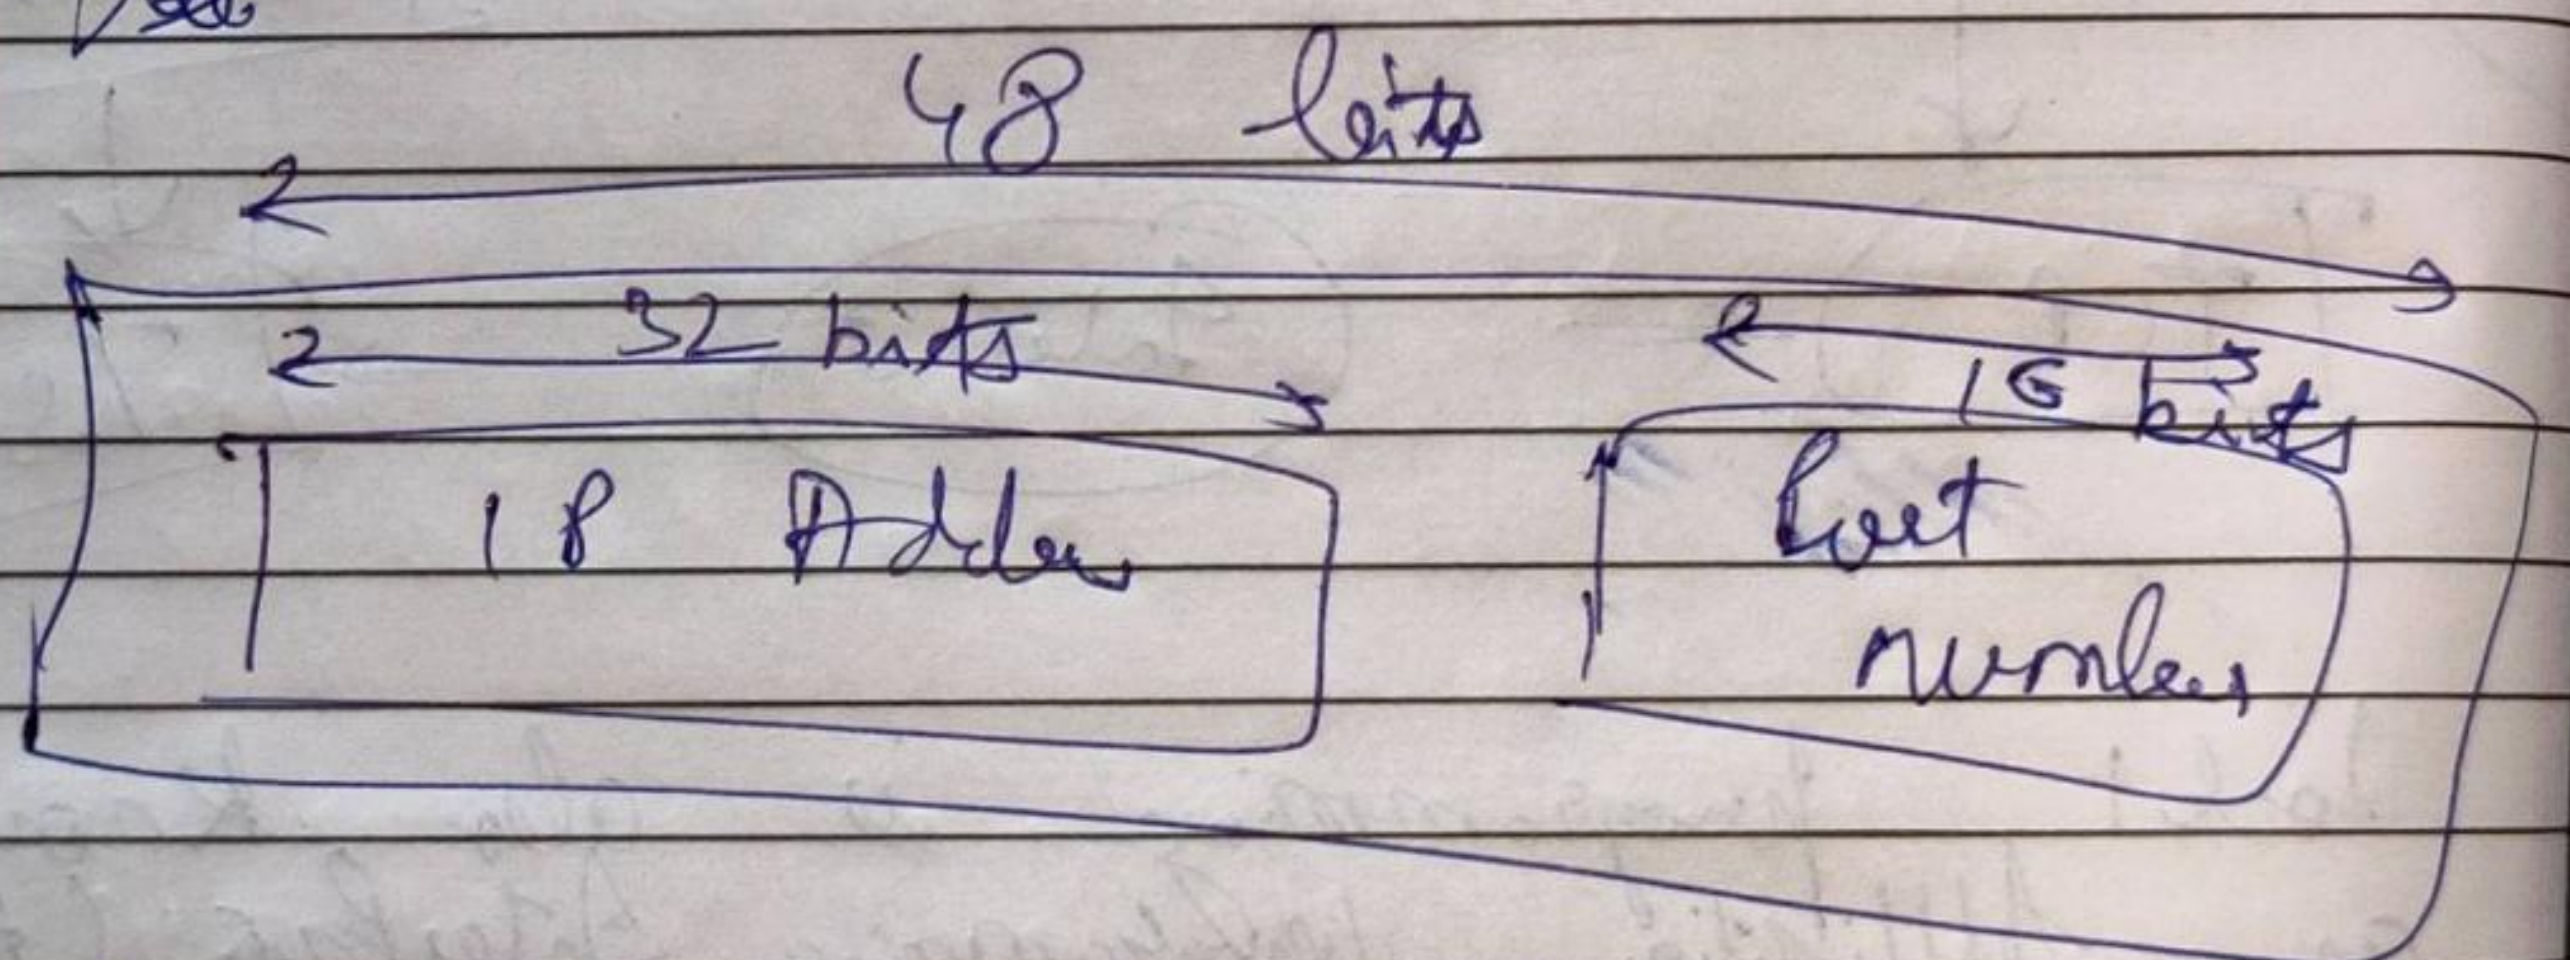 48 bits
32 bits
16 bits
IP Addres
Port
number